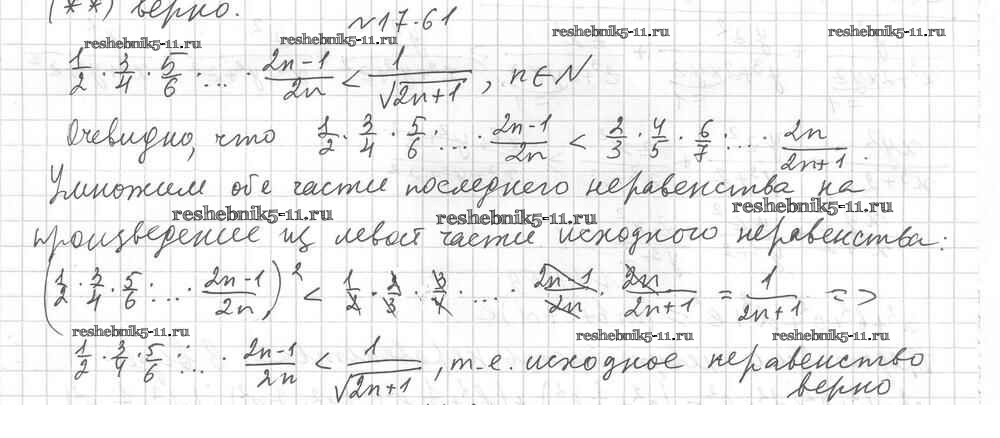 (**) верно.
№17.61
reshebnik5-11.ru reshebnik5-11.ru reshebnik5-11.ru reshebnik5-11.ru
1/2 · 3/4 · 5/6 · ... · (2n-1)/2n < 1/√(2n+1), n∈N
Очевидно, что 1/2 · 3/4 · 5/6 · ... · (2n-1)/2n < 2/3 · 4/5 · 6/7 · ... 2n/(2n+1).
Умножим обе части последнего неравенства на
reshebnik5-11.ru reshebnik5-11.ru reshebnik5-11.ru
произведение из левой части исходного неравенства:
(1/2 · 3/4 · 5/6 · ... · (2n-1)/2n)² < 1/2 · 2/3 · 3/4 · ... · (2n-1)/2n · 2n/(2n+1) = 1/(2n+1) =>
reshebnik5-11.ru reshebnik5-11.ru reshebnik5-11.ru
1/2 · 3/4 · 5/6 · ... · (2n-1)/2n < 1/√(2n+1), т.е. исходное неравенство
верно